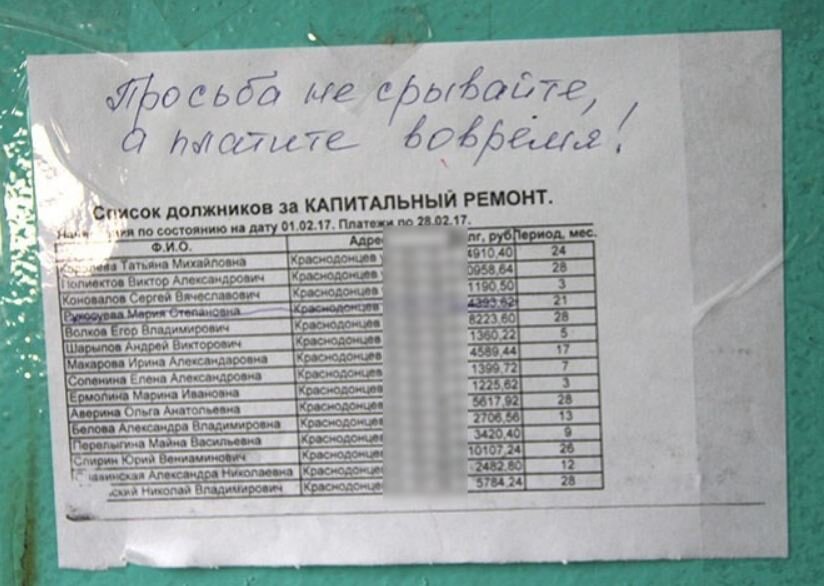 Просьба не срывайте,
а платите вовремя!
Список должников за КАПИТАЛЬНЫЙ РЕМОНТ.
по состоянию на дату 01.02.17. Платежи по 28.02.17.
Ф.И.О. Период, мес.
Татьяна Михайловна Краснодонцев 4910,40 24
Полиектов Виктор Александрович Краснодонцев 0958,64 28
Коновалов Сергей Вячеславович Краснодонцев 1190,50 3
Рукосуева Мария Степановна Краснодонцев 4393,62 21
Волков Егор Владимирович Краснодонцев 8223,60 28
Шарыпов Андрей Викторович Краснодонцев 1360,22 5
Макарова Ирина Александаровна Краснодонцев 4589,44 17
Сопенина Елена Александровна Краснодонцев 1399,72 7
Ермолина Марина Ивановна Краснодонцев 1225,62 3
Аверина Ольга Анатольевна Краснодонцев 5617,92 28
Белова Александра Владимировна Краснодонцев 2706,56 13
Перелыгина Майна Васильевна Краснодонцев 3420,40 9
Спирин Юрий Вениаминович Краснодонцев 10107,24 26
Александра Николаевна Краснодонцев 2482,80 12
Николай Владимирович Краснодонцев 5784,24 28